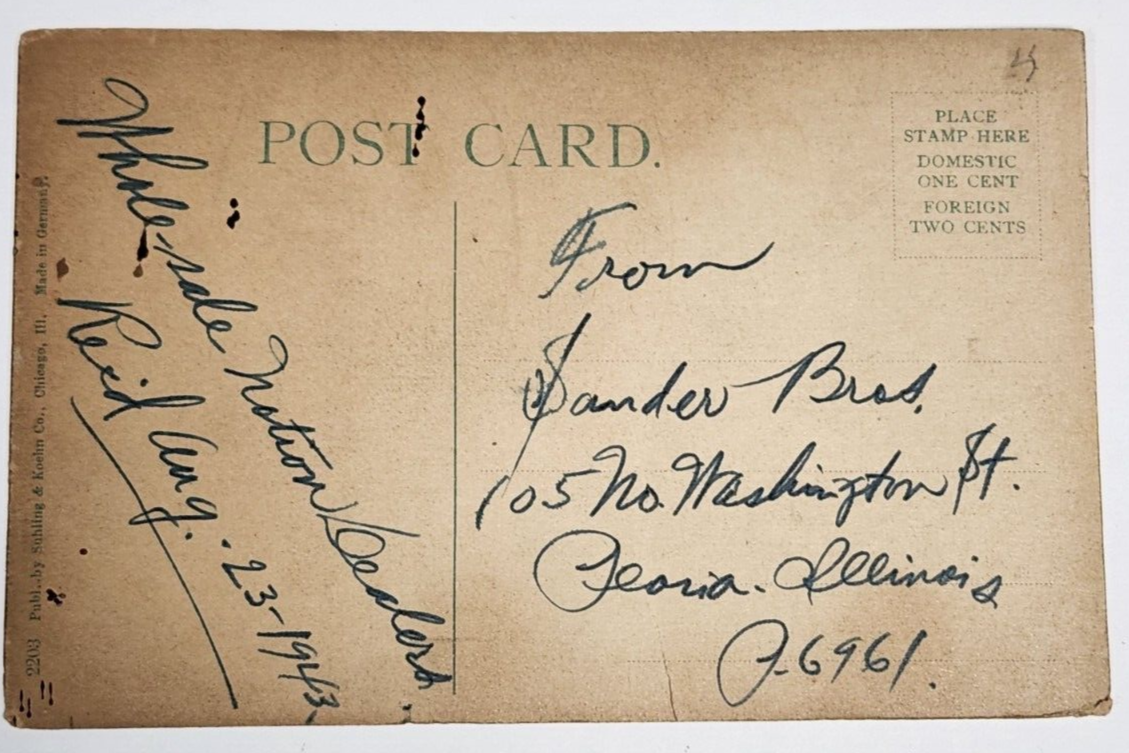 POST CARD.
PLACE
STAMP HERE
DOMESTIC
ONE CENT
FOREIGN
TWO CENTS
Wholesale Notion Dealers.
Rec'd Aug. -23-1943.
From
Sander Bros.
105 No. Washington St.
Peoria. Illinois
P-6961.
2203 Publ. by Suhling & Koehn Co., Chicago, Ill. Made in Germany.